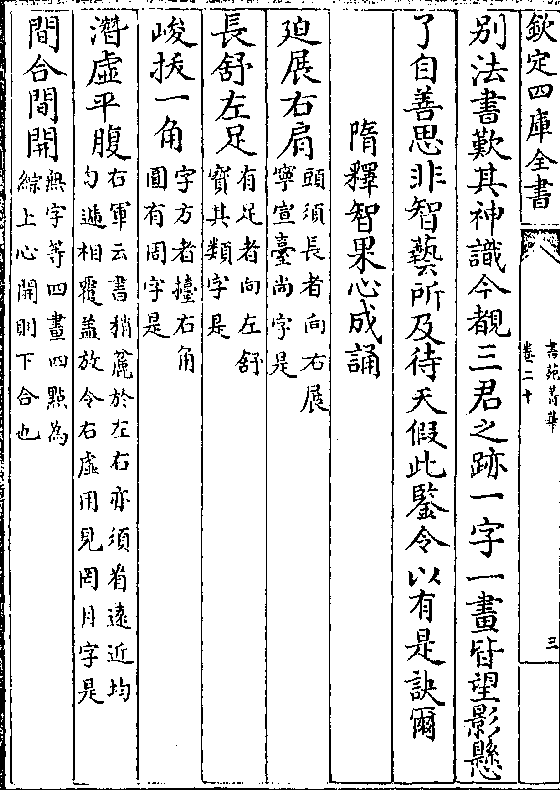 欽定四庫全書
書苑菁華
卷二十
三
别法書歎其神識今覩三君之跡一字一畫皆望影懸
了自善思非智藝所及待天假此鑒令以有是訣爾
隋釋智果心成誦
𢌞展右肩
頭須長者向右展
寧宣臺尚字是
長舒左足
有足者向左舒
寳其類字是
峻拔一角
字方者擡右角
圓有周字是
潛虛平腹
右軍云書稍麄於左右亦須看遠近均
勻遞相覆蓋放令右虛用見罔月字是
間合間開
無字等四畫四㸃為
綜上心開則下合也